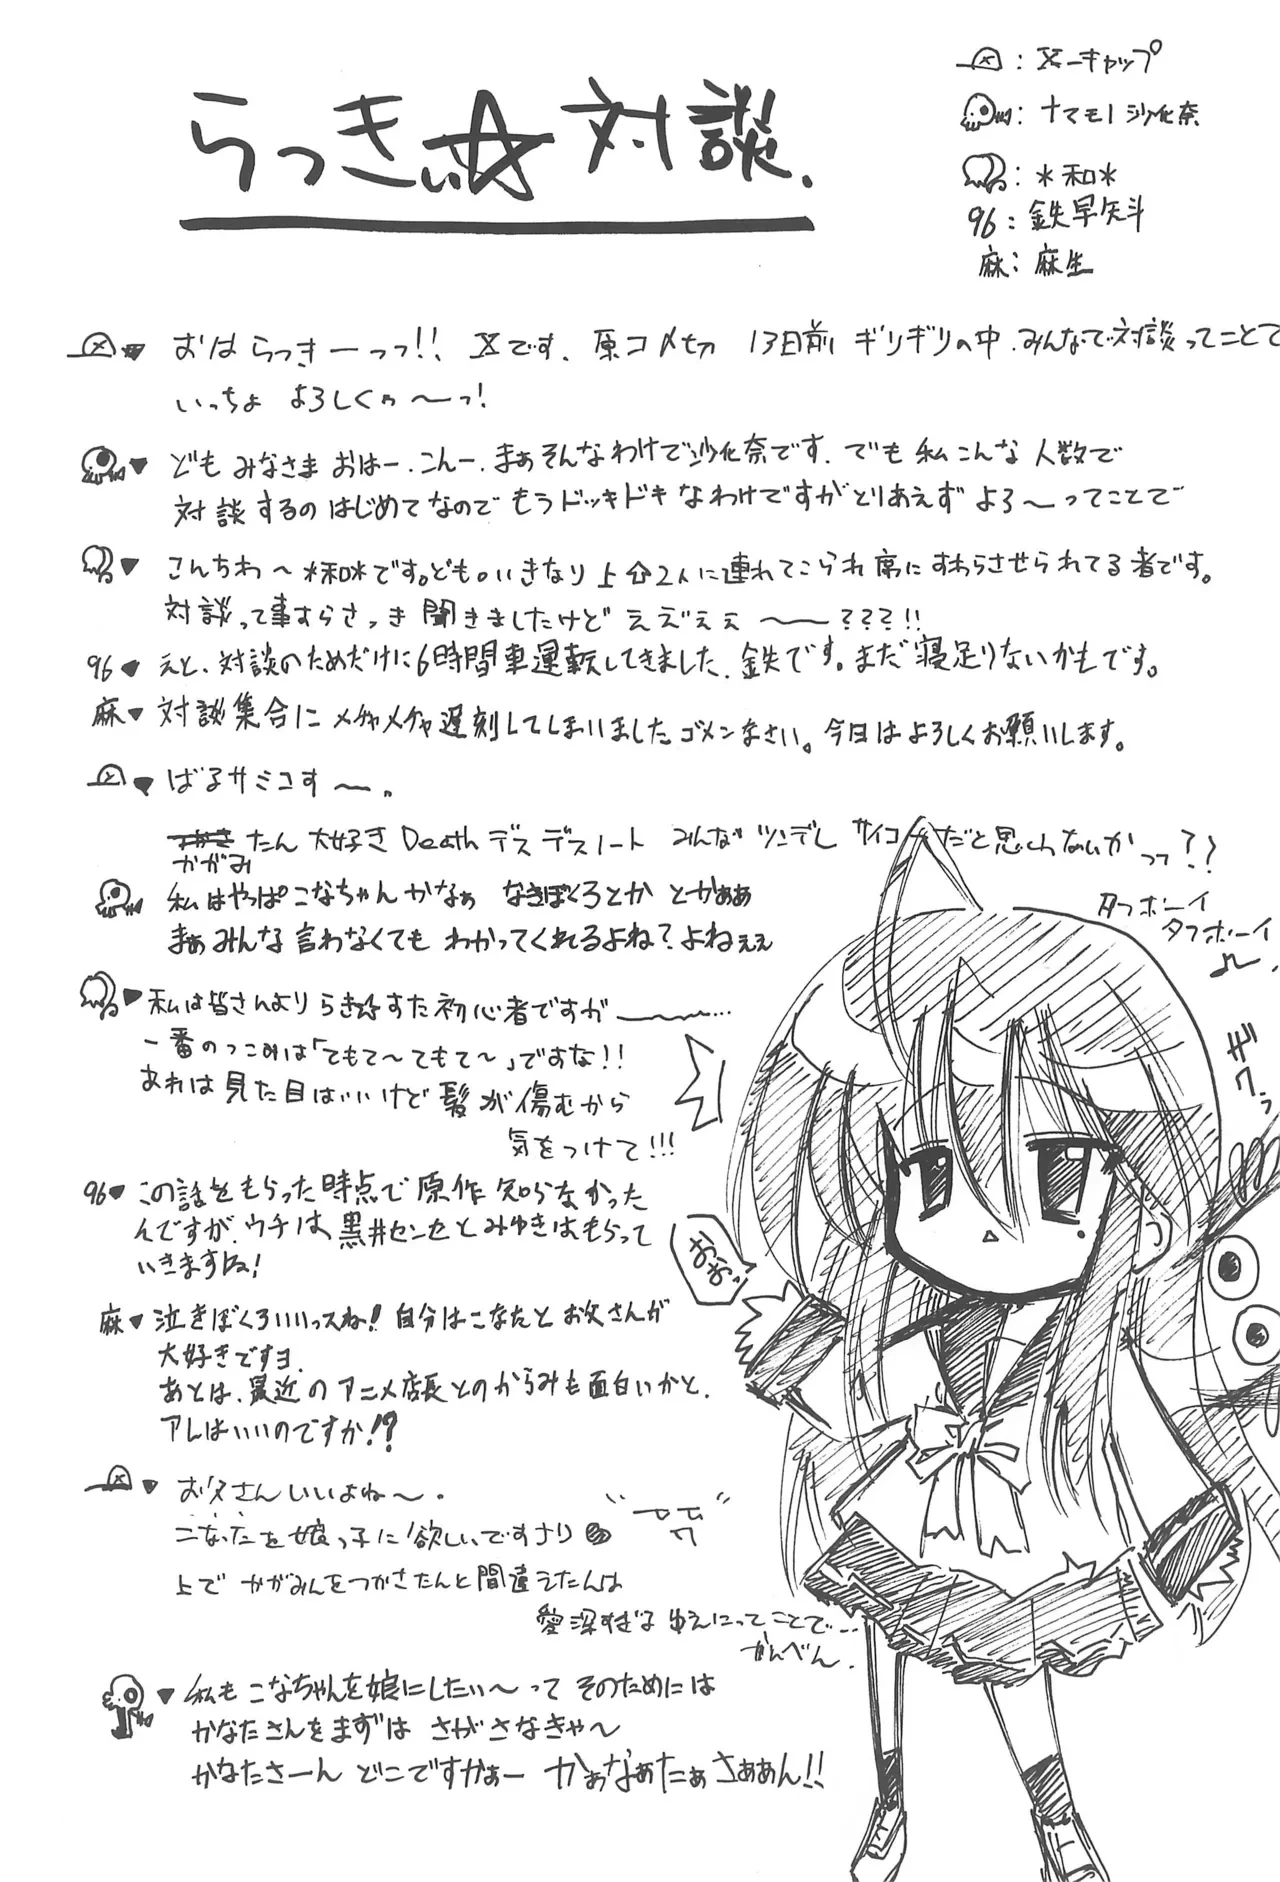 らっきぃ☆対談.
：X-キャップ
：ナマモノ沙化奈
：＊和＊
96：鉄早矢斗
麻：麻生
おはらっきーっっ!!、Xです、原コメ切 13日前 ギリギリの中、みんなで対談ってことで
いっちょ よろしくゥ〜っ!
ども みなさま おはー、こんー、まぁそんなわけで沙化奈です、でも 私こんな人数で
対談するの はじめてなので もうドッキドキなわけですがとりあえず よろ〜ってことで
こんちわ〜＊和＊です。ども。いきなり上の2人に連れてこられ席にすわらさせられてる者です。
対談って事すらさっき聞きましたけど ええ゛ぇぇ〜〜???!!
96♥えと、対談のためだけに6時間車運転してきました、鉄です。まだ寝足りないかもです。
麻♥対談集合にメチャメチャ遅刻してしまいました、ゴメンなさい。今日はよろしくお願いします。
ばるサミコす〜。
かがみたん 大好き Death デス デスノート みんな ツンデレ サイコーだと思わないかっっ??
私はやっぱこなちゃんかなぁ なきぼくろとか とかぁぁ
まぁみんな言わなくても わかってくれるよね?よねぇぇ
タフボーイ
タフボーイ♪
私は皆さんより らき☆すた初心者ですが〜〜…
一番のつっこみは「てもて〜てもて〜」ですな!!
あれは見た目はいいけど髪が傷むから
気をつけて!!!
96♥この話をもらった時点で原作知らなかった
んですが、ウチは、黒井センセとみゆきはもらって
いきますね!
おおっ
麻♥泣きぼくろいいっスね!自分はこなたとお父さんが
大好きですヨ、
あとは、最近のアニメ店長とのからみも面白いかと、
アレはいいのですか!?
お父さんいいよね〜。
こなたを娘っ子に欲しいですナリ
上で かがみんをつかさたんと間違えたんは
愛深すぎるゆえにってことで…
かんべん、
私も こなちゃんを娘にしたい〜って そのためには
かなたさんをまずは さがさなきゃ〜
かなたさーん どこですかぁー かぁなぁたぁさぁぁん!!